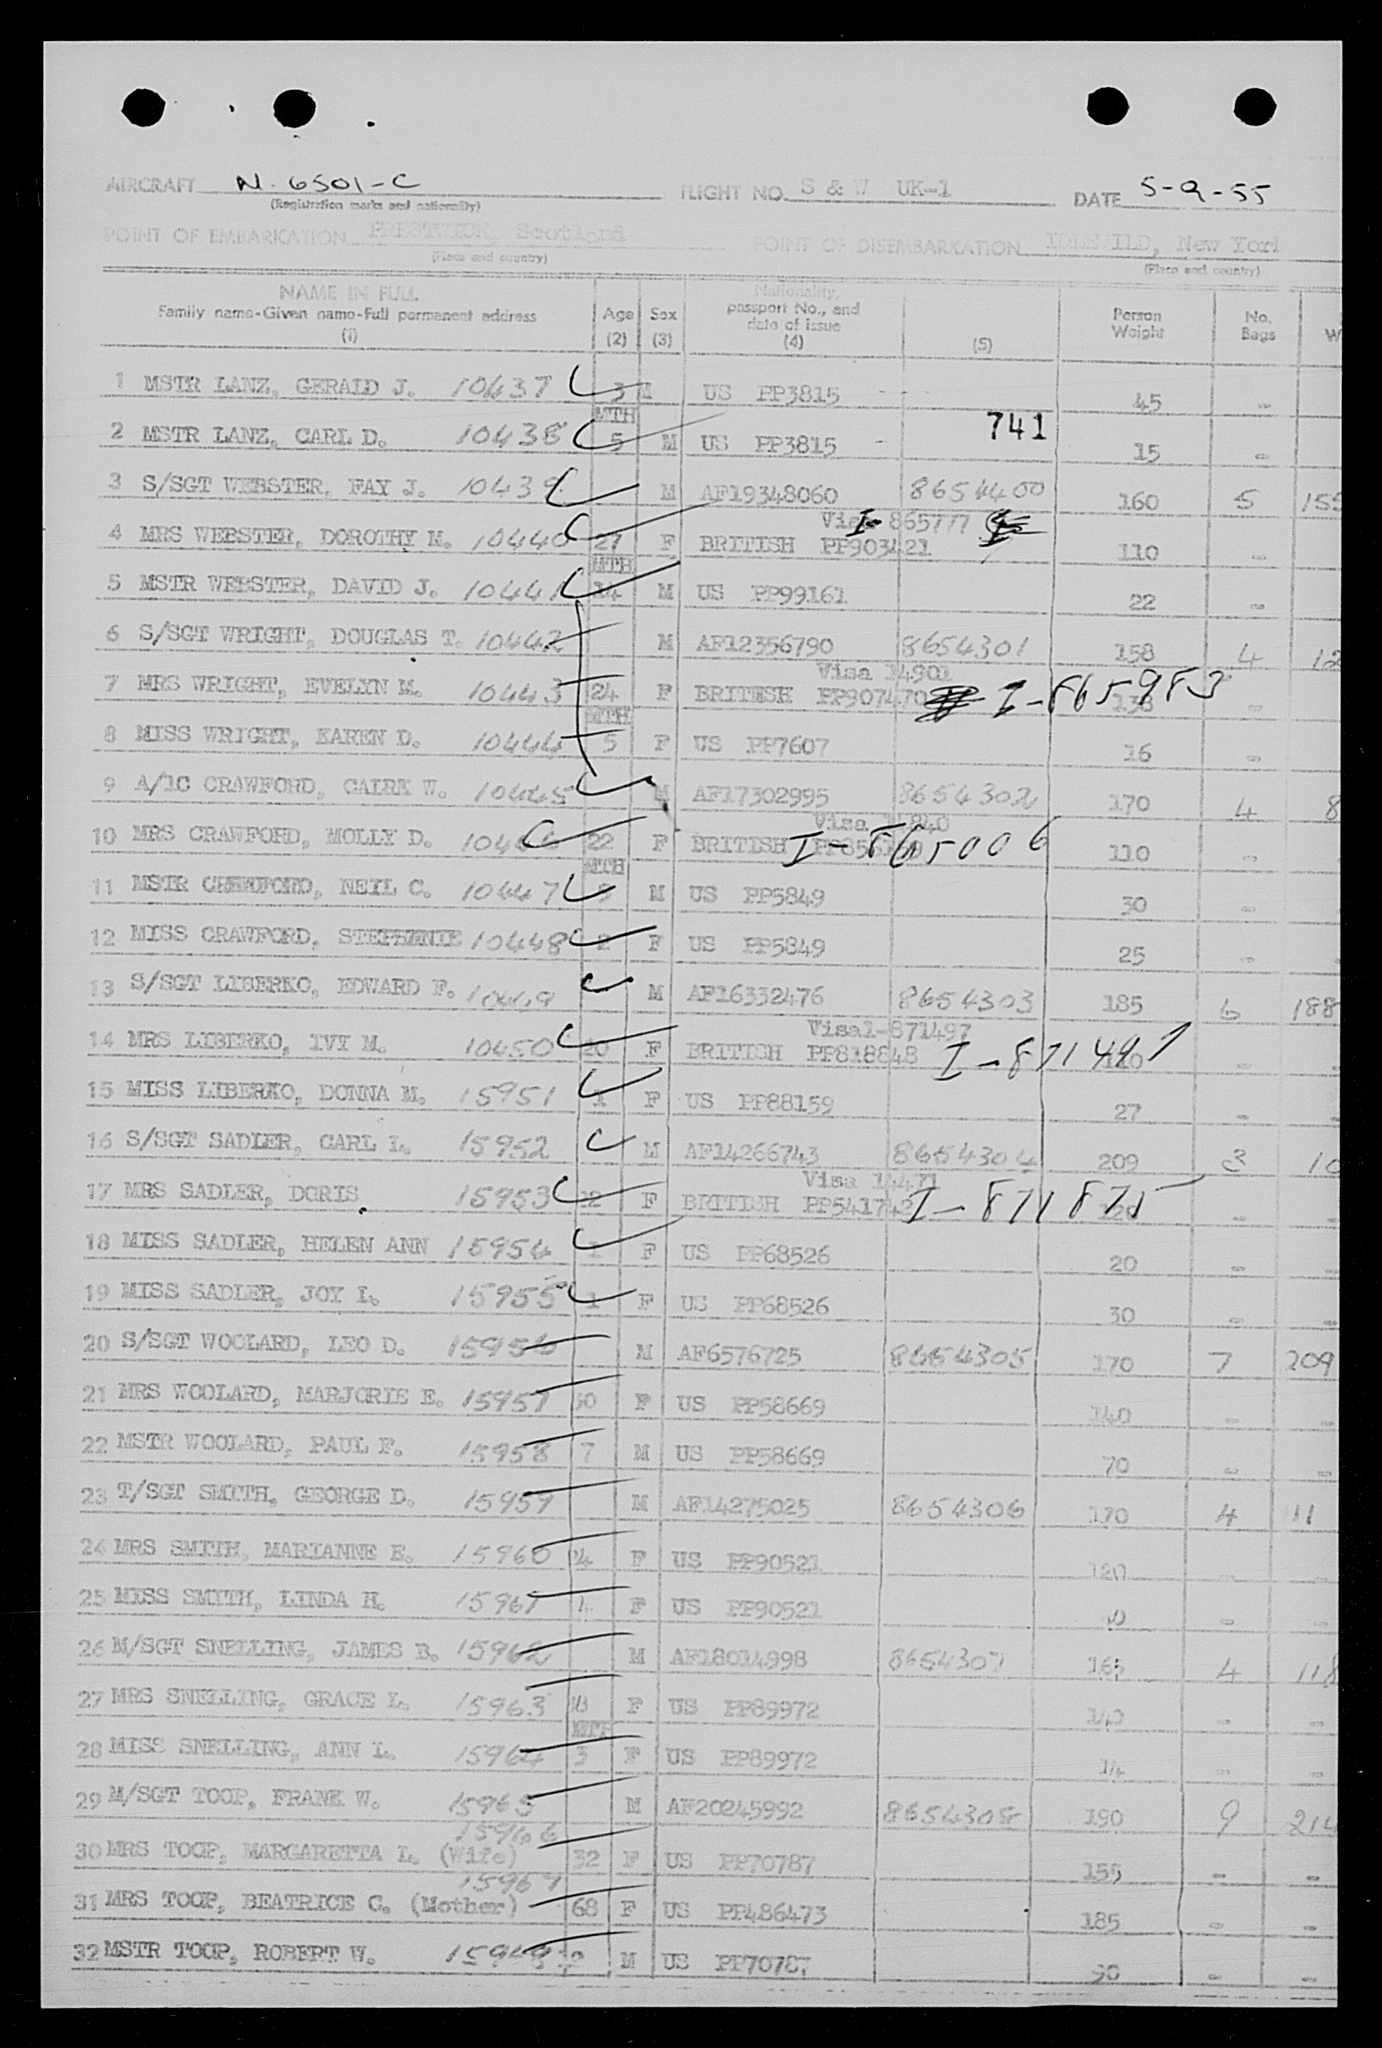 AIRCRAFT N-6501-C FLIGHT NO. S & W UK-1 DATE 5-9-55
(Registration marks and nationality)
POINT OF EMBARKATION PRESTWICK, Scotland POINT OF DISEMBARKATION IDLEWILD, New York
(Place and country) (Place and country)
NAME IN FULL
Family name-Given name-Full permanent address
(1)
Age
(2)
Sex
(3)
Nationality,
passport No., and
date of issue
(4)
(5)
Person
Weight
No.
Bags
W
1 MSTR LANZ, GERALD J. 10437 3 M US PP3815 - 45 -
MTH 741
2 MSTR LANZ, CARL D. 10438 5 M US PP3815 - 15 -
3 S/SGT WEBSTER, FAY J. 10439 M AF19348060 8654400 160 5 155
Visa I-
4 MRS WEBSTER, DOROTHY M. 10440 27 F BRITISH PP903421 110 -
MTH
5 MSTR WEBSTER, DAVID J. 10441 14 M US PP99161 22 -
6 S/SGT WRIGHT, DOUGLAS T. 10442 M AF12356790 8654301 158 4 12
Visa 14901
7 MRS WRIGHT, EVELYN M. 10443 24 F BRITISH PP907470 I-865983 138 -
MTH
8 MISS WRIGHT, KAREN D. 10444 5 F US PP7607 16 -
9 A/1C CRAWFORD, CALRE W. 10445 M AF17302995 8654302 170 4 8
Visa
10 MRS CRAWFORD, MOLLY D. 22 F BRITISH I-865006 110 -
MTH
11 MSTR CRAWFORD, NEIL C. 10447 M US PP5849 30 -
12 MISS CRAWFORD, STEPHANIE 10448 2 F US PP5849 25 -
13 S/SGT LIBERKO, EDWARD F. 10449 M AF16332476 8654303 185 6 188
Visa1-871497
14 MRS LIBERKO, IVY M. 10450 20 F BRITISH PP818848 I-871497 110 -
15 MISS LIBERKO, DONNA M. 15951 1 F US PP88159 27 -
16 S/SGT SADLER, CARL L. 15952 M AF14266743 8654304 209 3 10
Visa 14471
17 MRS SADLER, DORIS 15953 F BRITISH I-871871 120 -
18 MISS SADLER, HELEN ANN 15954 1 F US PP68526 20 -
19 MISS SADLER, JOY L. 15955 1 F US PP68526 30 - -
20 S/SGT WOOLARD, LEO D. 15956 M AF6576725 8654305 170 7 209
21 MRS WOOLARD, MARJORIE E. 15957 F US PP58669 140 - -
22 MSTR WOOLARD, PAUL F. 15958 7 M US PP58669 70 - -
23 T/SGT SMITH, GEORGE D. 15959 M AF14275025 8654306 170 4 11
24 MRS SMITH, MARIANNE E. 15960 F US PP90521 120 - -
25 MISS SMITH, LINDA H. 15961 F US PP90521 - -
26 M/SGT SNELLING, JAMES B. 15962 M AF18014998 8654307 165 4 118
27 MRS SNELLING, GRACE L. 15963 F US PP89972 140 - -
MTH
28 MISS SNELLING, ANN L. 15964 3 F US PP89972 14 - -
29 M/SGT TOOP, FRANK W. 15965 M AF20245992 8654308 190 9 214
15966
30 MRS TOOP, MARGARETTA L. (Wife) 32 F US PP70787 155 - -
15967
31 MRS TOOP, BEATRICE C. (Mother) 68 F US PP486473 185 - -
32 MSTR TOOP, ROBERT W. M US PP70787 90 - -